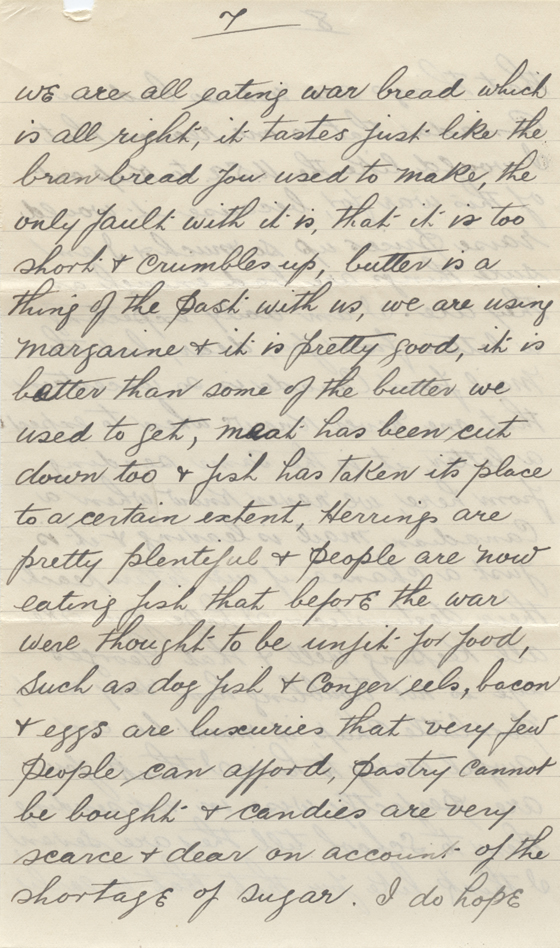 7
we are all eating war bread which
is all right, it tastes just like the
bran bread you used to make, the
only fault with it is, that it is too
short & crumbles up, butter is a
thing of the past with us, we are using
margarine & it is pretty good, it is
better than some of the butter we
used to get, meat has been cut
down too & fish has taken its place
to a certain extent, Herrings are
pretty plentiful & people are now
eating fish that before the war
were thought to be unfit for food,
such as dog fish & Conger eels, bacon
& eggs are luxuries that very few
people can afford, pastry cannot
be bought & candies are very
scarce & dear on account of the
shortage of sugar. I do hope